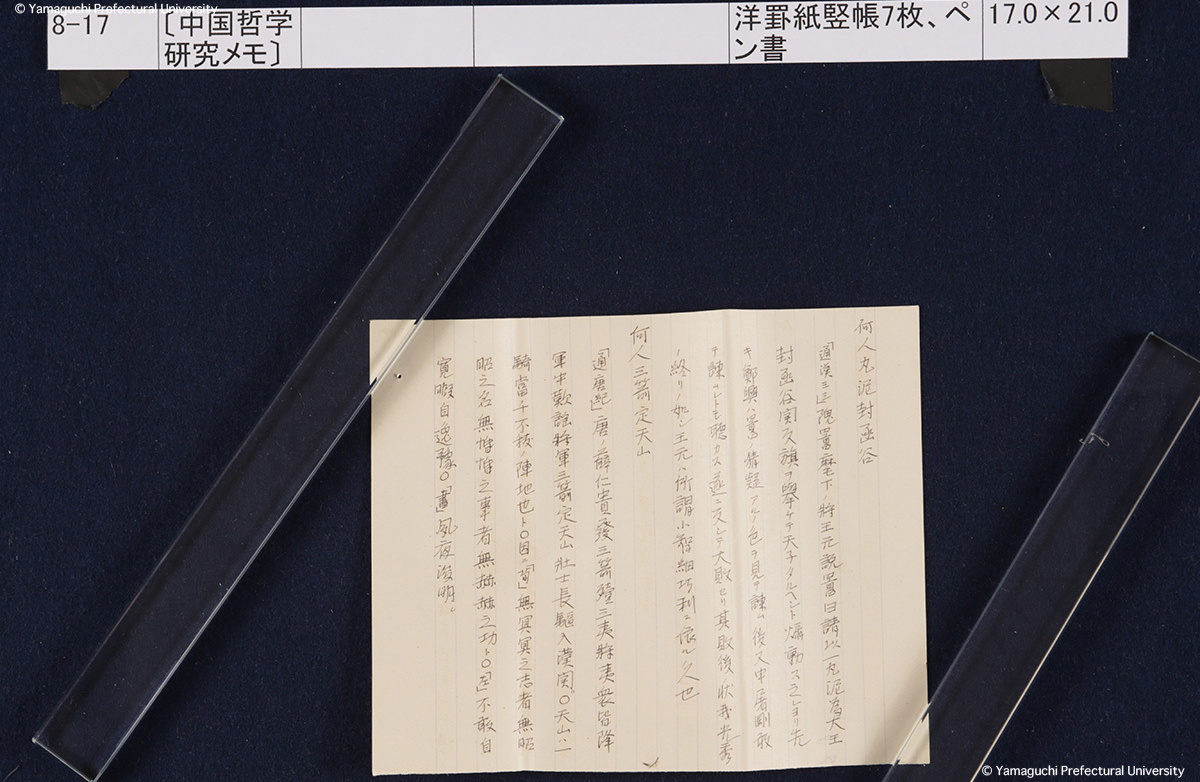 © Yamaguchi Prefectural University
8-17
〔中国哲学
研究メモ〕
洋罫紙竪帳7枚、ペ
ン書
17.0×21.0
何人丸泥封函谷
「通漢三」隗囂麾下ノ将王元説囂曰請以一丸泥為大王
封函谷関又旗ヲ挙ケテ天子タルヘント煽動ス之レヨリ先
キ鄭興ハ囂ノ猜疑アルノ色ヲ見テ諫ム後又申屠剛敢
テ諫サレトモ聴カス遂ニ反シテ大敗セリ其敗後ノ状
ノ終リノ如シ王元ハ所謂小智細巧利ニ依ル久人也
何人三箭定天山
「通唐紀」唐ノ薛仁貴発三箭殪三夷将夷衆皆降
軍中歌謡将軍三箭定天山壮士長駆入漢関○天山ハ二
騎当千不抜ノ陣地也ト○因ニ「荀」無冥冥之志者無昭
昭之名無惛惛之事者無赫赫之功ト○「左」不敢自
寛暇自逸豫○「書」夙夜浚明。
© Yamaguchi Prefectural University